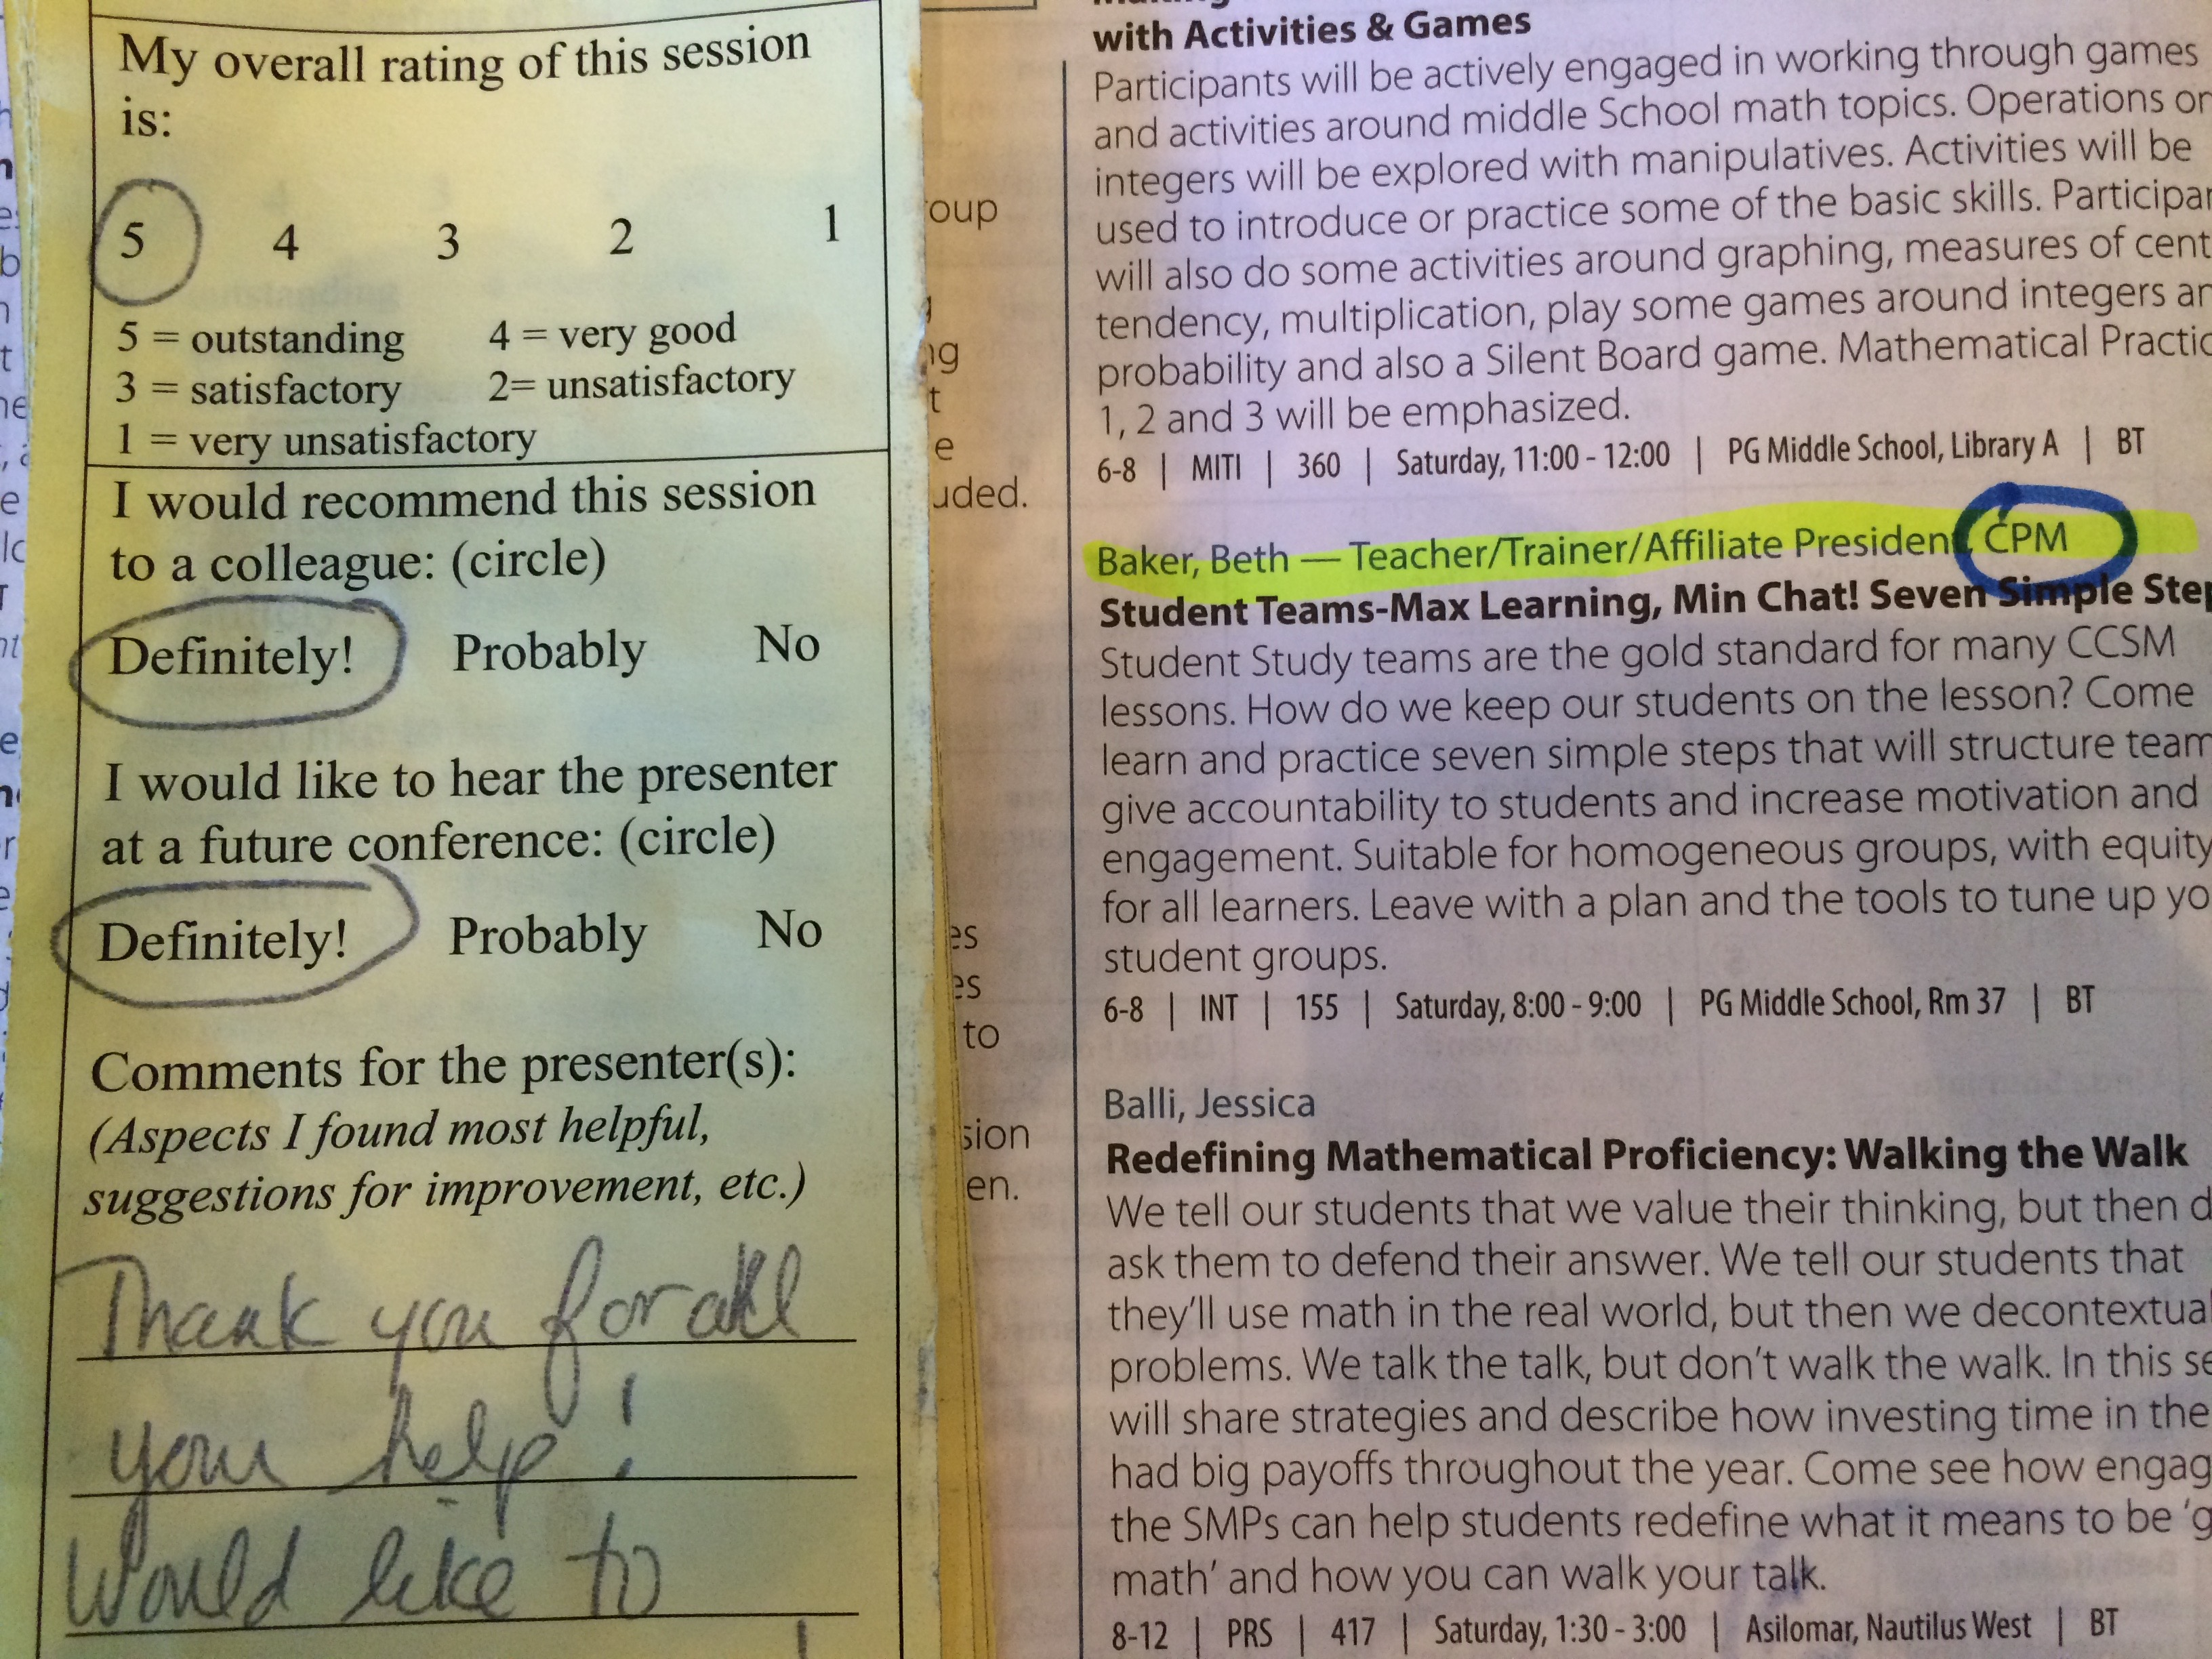 My overall rating of this session
is:
5 4 3 2 1
5 = outstanding 4 = very good
3 = satisfactory 2= unsatisfactory
1 = very unsatisfactory
I would recommend this session
to a colleague: (circle)
Definitely! Probably No
I would like to hear the presenter
at a future conference: (circle)
Definitely! Probably No
Comments for the presenter(s):
(Aspects I found most helpful,
suggestions for improvement, etc.)
Thank you for all
your help!
Would like to
oup
ng
t
e
uded.
es
es
to
sion
en.
with Activities & Games
Participants will be actively engaged in working through games
and activities around middle School math topics. Operations on
integers will be explored with manipulatives. Activities will be
used to introduce or practice some of the basic skills. Participan
will also do some activities around graphing, measures of cent
tendency, multiplication, play some games around integers an
probability and also a Silent Board game. Mathematical Practic
1, 2 and 3 will be emphasized.
6-8 | MITI | 360 | Saturday, 11:00 - 12:00 | PG Middle School, Library A | BT
Baker, Beth — Teacher/Trainer/Affiliate President, CPM
Student Teams-Max Learning, Min Chat! Seven Simple Step
Student Study teams are the gold standard for many CCSM
lessons. How do we keep our students on the lesson? Come
learn and practice seven simple steps that will structure team
give accountability to students and increase motivation and
engagement. Suitable for homogeneous groups, with equity
for all learners. Leave with a plan and the tools to tune up yo
student groups.
6-8 | INT | 155 | Saturday, 8:00 - 9:00 | PG Middle School, Rm 37 | BT
Balli, Jessica
Redefining Mathematical Proficiency: Walking the Walk
We tell our students that we value their thinking, but then d
ask them to defend their answer. We tell our students that
they'll use math in the real world, but then we decontextual
problems. We talk the talk, but don't walk the walk. In this se
will share strategies and describe how investing time in the
had big payoffs throughout the year. Come see how engag
the SMPs can help students redefine what it means to be 'g
math' and how you can walk your talk.
8-12 | PRS | 417 | Saturday, 1:30 - 3:00 | Asilomar, Nautilus West | BT